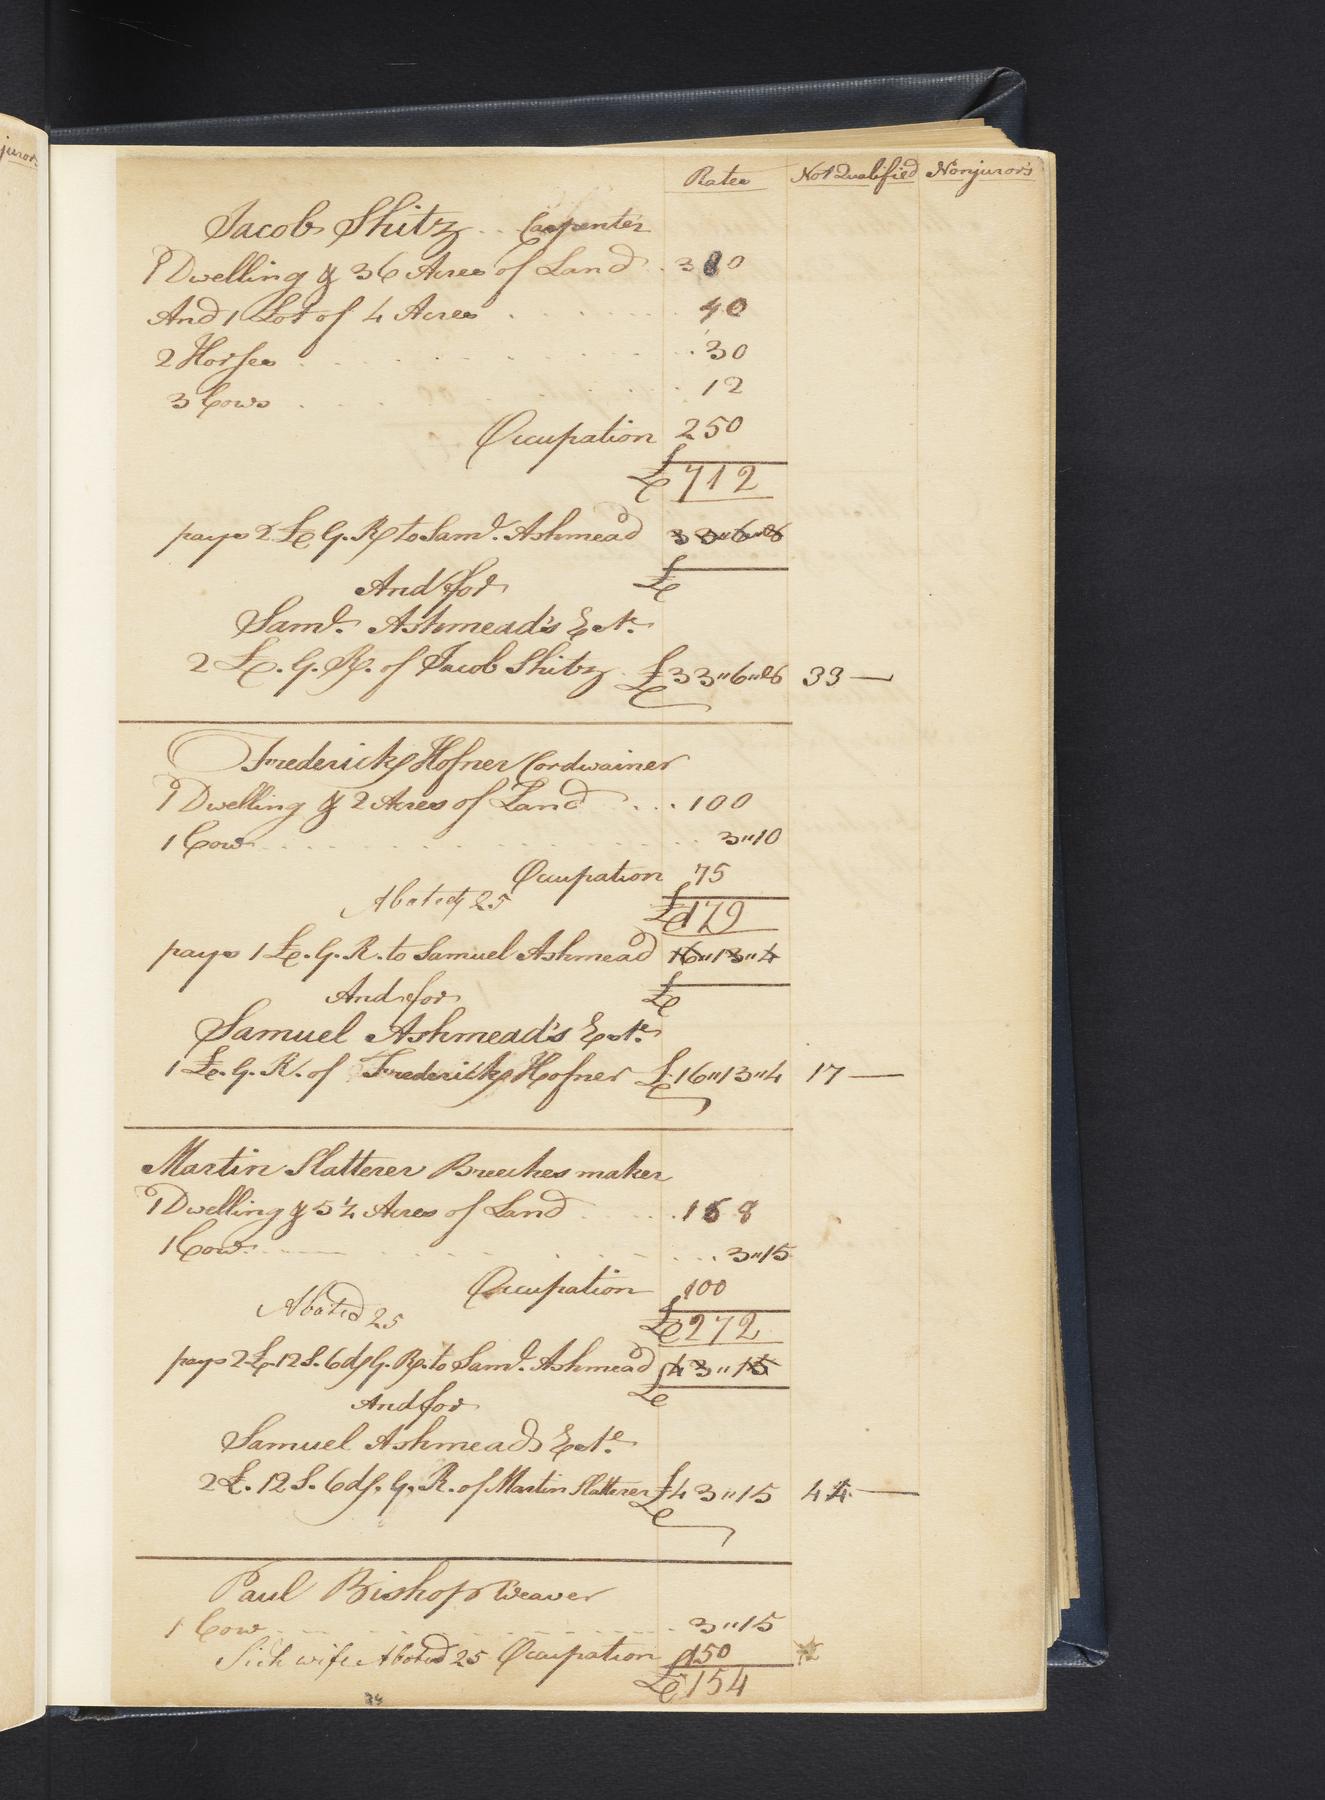 juror
Rates Not Qualified Nonjuror's
Jacob Shitz .. Carpenter
1 Dwelling & 36 Acres of Land . 380
And 1 Lot of 4 Acres . . . . 40
2 Horses . . . . 30
3 Cows . . . . 12
Occupation 250
£ 712
pays 2 £ G. R to Saml. Ashmead 33"6"8
And for £
Saml. Ashmead's Este.
2 £. G. R. of Jacob Shitz £33"6"8 33 —
Frederick Hofner Cordwainer
1 Dwelling & 2 Acres of Land . . . 100
1 Cow . . . . 3"10
Occupation 75
Abated 25 £179
pays 1 £. G. R. to Samuel Ashmead 16"13"4
And for £
Samuel Ashmead's Este.
1 £. G. R. of Frederick Hofner £16"13"4 17 —
Martin Slatterer Breeches maker
1 Dwelling & 5½ Acres of Land . . . 168
1 Cow . . . . 3"15
Occupation 100
Abated 25 £272
pays 2 £. 12 S. 6d G. R. to Saml. Ashmead 43"15
And for £
Samuel Ashmeads Este.
2 £. 12 S. 6d. G. R. of Martin Slatterer £43"15 44 —
Paul Bishop Weaver
1 Cow . . . . 3"15
Sick wife Abated 25 Occupation 150
£154
34